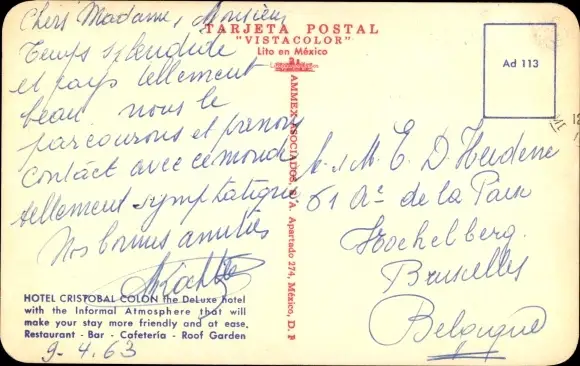 Chers Madame, Monsieur
Temps splendide
et pays tellement
beau. nous le
parcourons et prenons
contact avec ce monde
tellement sympathique
Nos bonnes amitiés
HOTEL CRISTOBAL COLON the DeLuxe hotel
with the Informal Atmosphere that will
make your stay more friendly and at ease.
Restaurant - Bar - Cafetería - Roof Garden
9-4.63
TARJETA POSTAL
"VISTACOLOR"
Lito en México
AMMEX ASOCIADOS, S. A. Apartado 274, México, D. F
Ad 113
12
E. D. Heiderne
61 Ae de la Paix
Koekelberg.
Bruxelles
Belgique